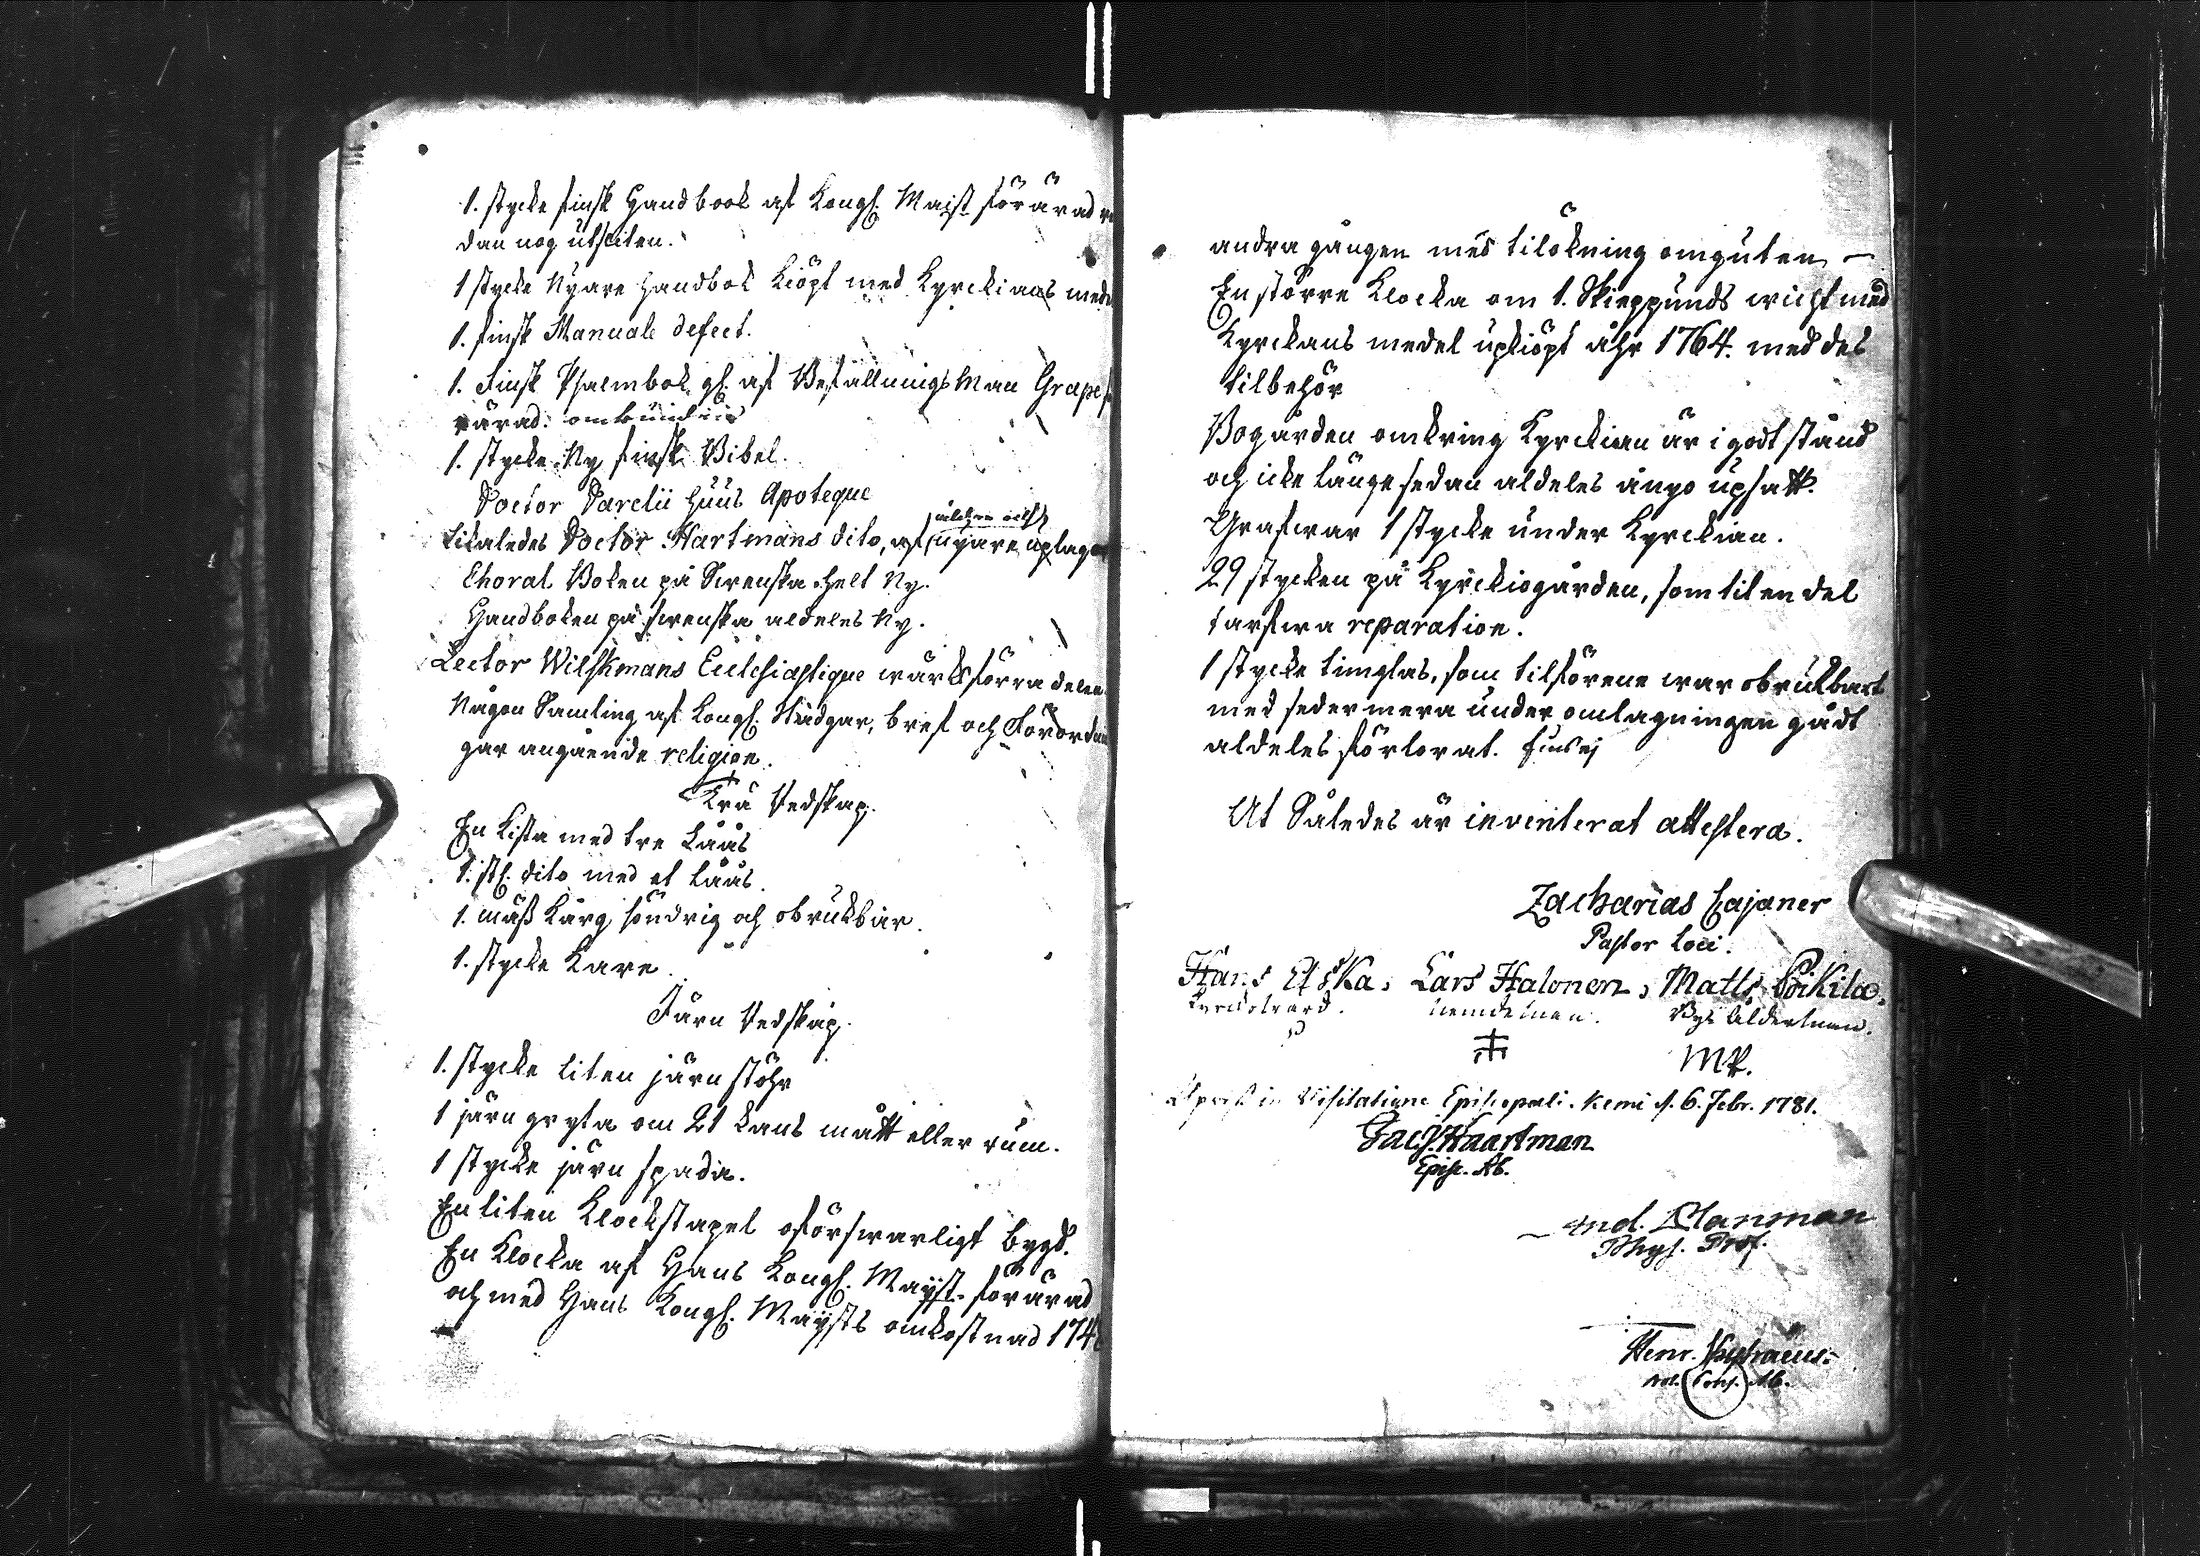 1. stycke finsk Handbook af Kongl. Maijst förärad re
dan nog utsliten.
1 stycke Nyare Handbok kiöpt med Kyrckians mede
1. finsk Manuale defect.
1. Finsk Psalmbok gl. af Befallnings Man Grape f
rärad: ombunden
1. stycke Ny finsk Bibel.
Doctor Darelii huus Apoteque
likaledes Doctor Hartmans dito, af nyare uplagor
Choral Boken på Swenska helt Ny.
Handboken på swenska aldeles Ny.
Lector Wilskmans Ecclesiastique wärk förra delen
Någon Samling af Kongl. Stadgar, bref och Förordnin
gar angående religion.
Trä Redskap.
En Kista med tre Låås
1. st. dito med et låås.
1. mäss kärg söndrig och obrukbar.
1. stycke Kare.
Järn Redskap.
1. stycke liten järn stöhr
1 järn gryta om 21 kans mått eller rum.
1 stycke järn spada.
En liten Klockstapel oförswarligt bygd.
En Klocka af Hans Kongl. Mayst. förärad
och med Hans Kongl. Maysts omkostnad 174
andra gången med tilökning omguten —
En större Klocka om 1. Skieppunds wicht med
Kyrckans medel upkiöpt åhr 1764. med des
tilbehör
Bogården omkring Kyrckian är i godt stånd
och icke länge sedan aldeles ånyo upsatt.
Grafwar 1 stycke under Kyrckian.
29 stycken på Kyrckiogården, som til en del
tarfwa reparation.
1 stycke timglas, som tilförene war obrukbart
med sedermera under omlagningen gådt
aldeles förlorat. fins ej
At Således är inventerat attestera.
Zacharias Cajaner
Pastor loci.
Hans Elska, Lars Halonen, Matts Poikila,
Kyrckiovärd. nemdeman. Bys Ålderman.
MP.
in Visitatione Episcopali. Kemi d. 6. Febr. 1781.
Jac. Haartman
Episc. Ab.
And. Planman
Phys. Prof.
Henr.
Not. Cons. Ab.